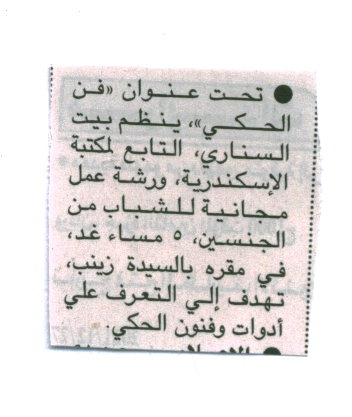 ● تحت عنوان «فن
الحكي»، ينظم بيت
السناري، التابع لمكتبة
الإسكندرية، ورشة عمل
مجانية للشباب من
الجنسين، ٥ مساء غد،
في مقره بالسيدة زينب،
تهدف إلي التعرف علي
أدوات وفنون الحكي.
●